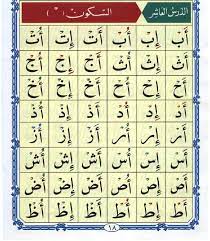 الدرس العاشر السكون ( ْ )
أَبْ إِبْ أُبْ أَتْ إِتْ أُتْ
أَثْ إِثْ أُثْ أَجْ إِجْ أُجْ
أَحْ إِحْ أُحْ أَخْ إِخْ أُخْ
أَدْ إِدْ أُدْ أَذْ إِذْ أُذْ
أَرْ إِرْ أُرْ أَزْ إِزْ أُزْ
أَسْ إِسْ أُسْ أَشْ إِشْ أُشْ
أَصْ إِصْ أُصْ أَضْ إِضْ أُضْ
أَطْ إِطْ أُطْ أَظْ إِظْ أُظْ
١٨